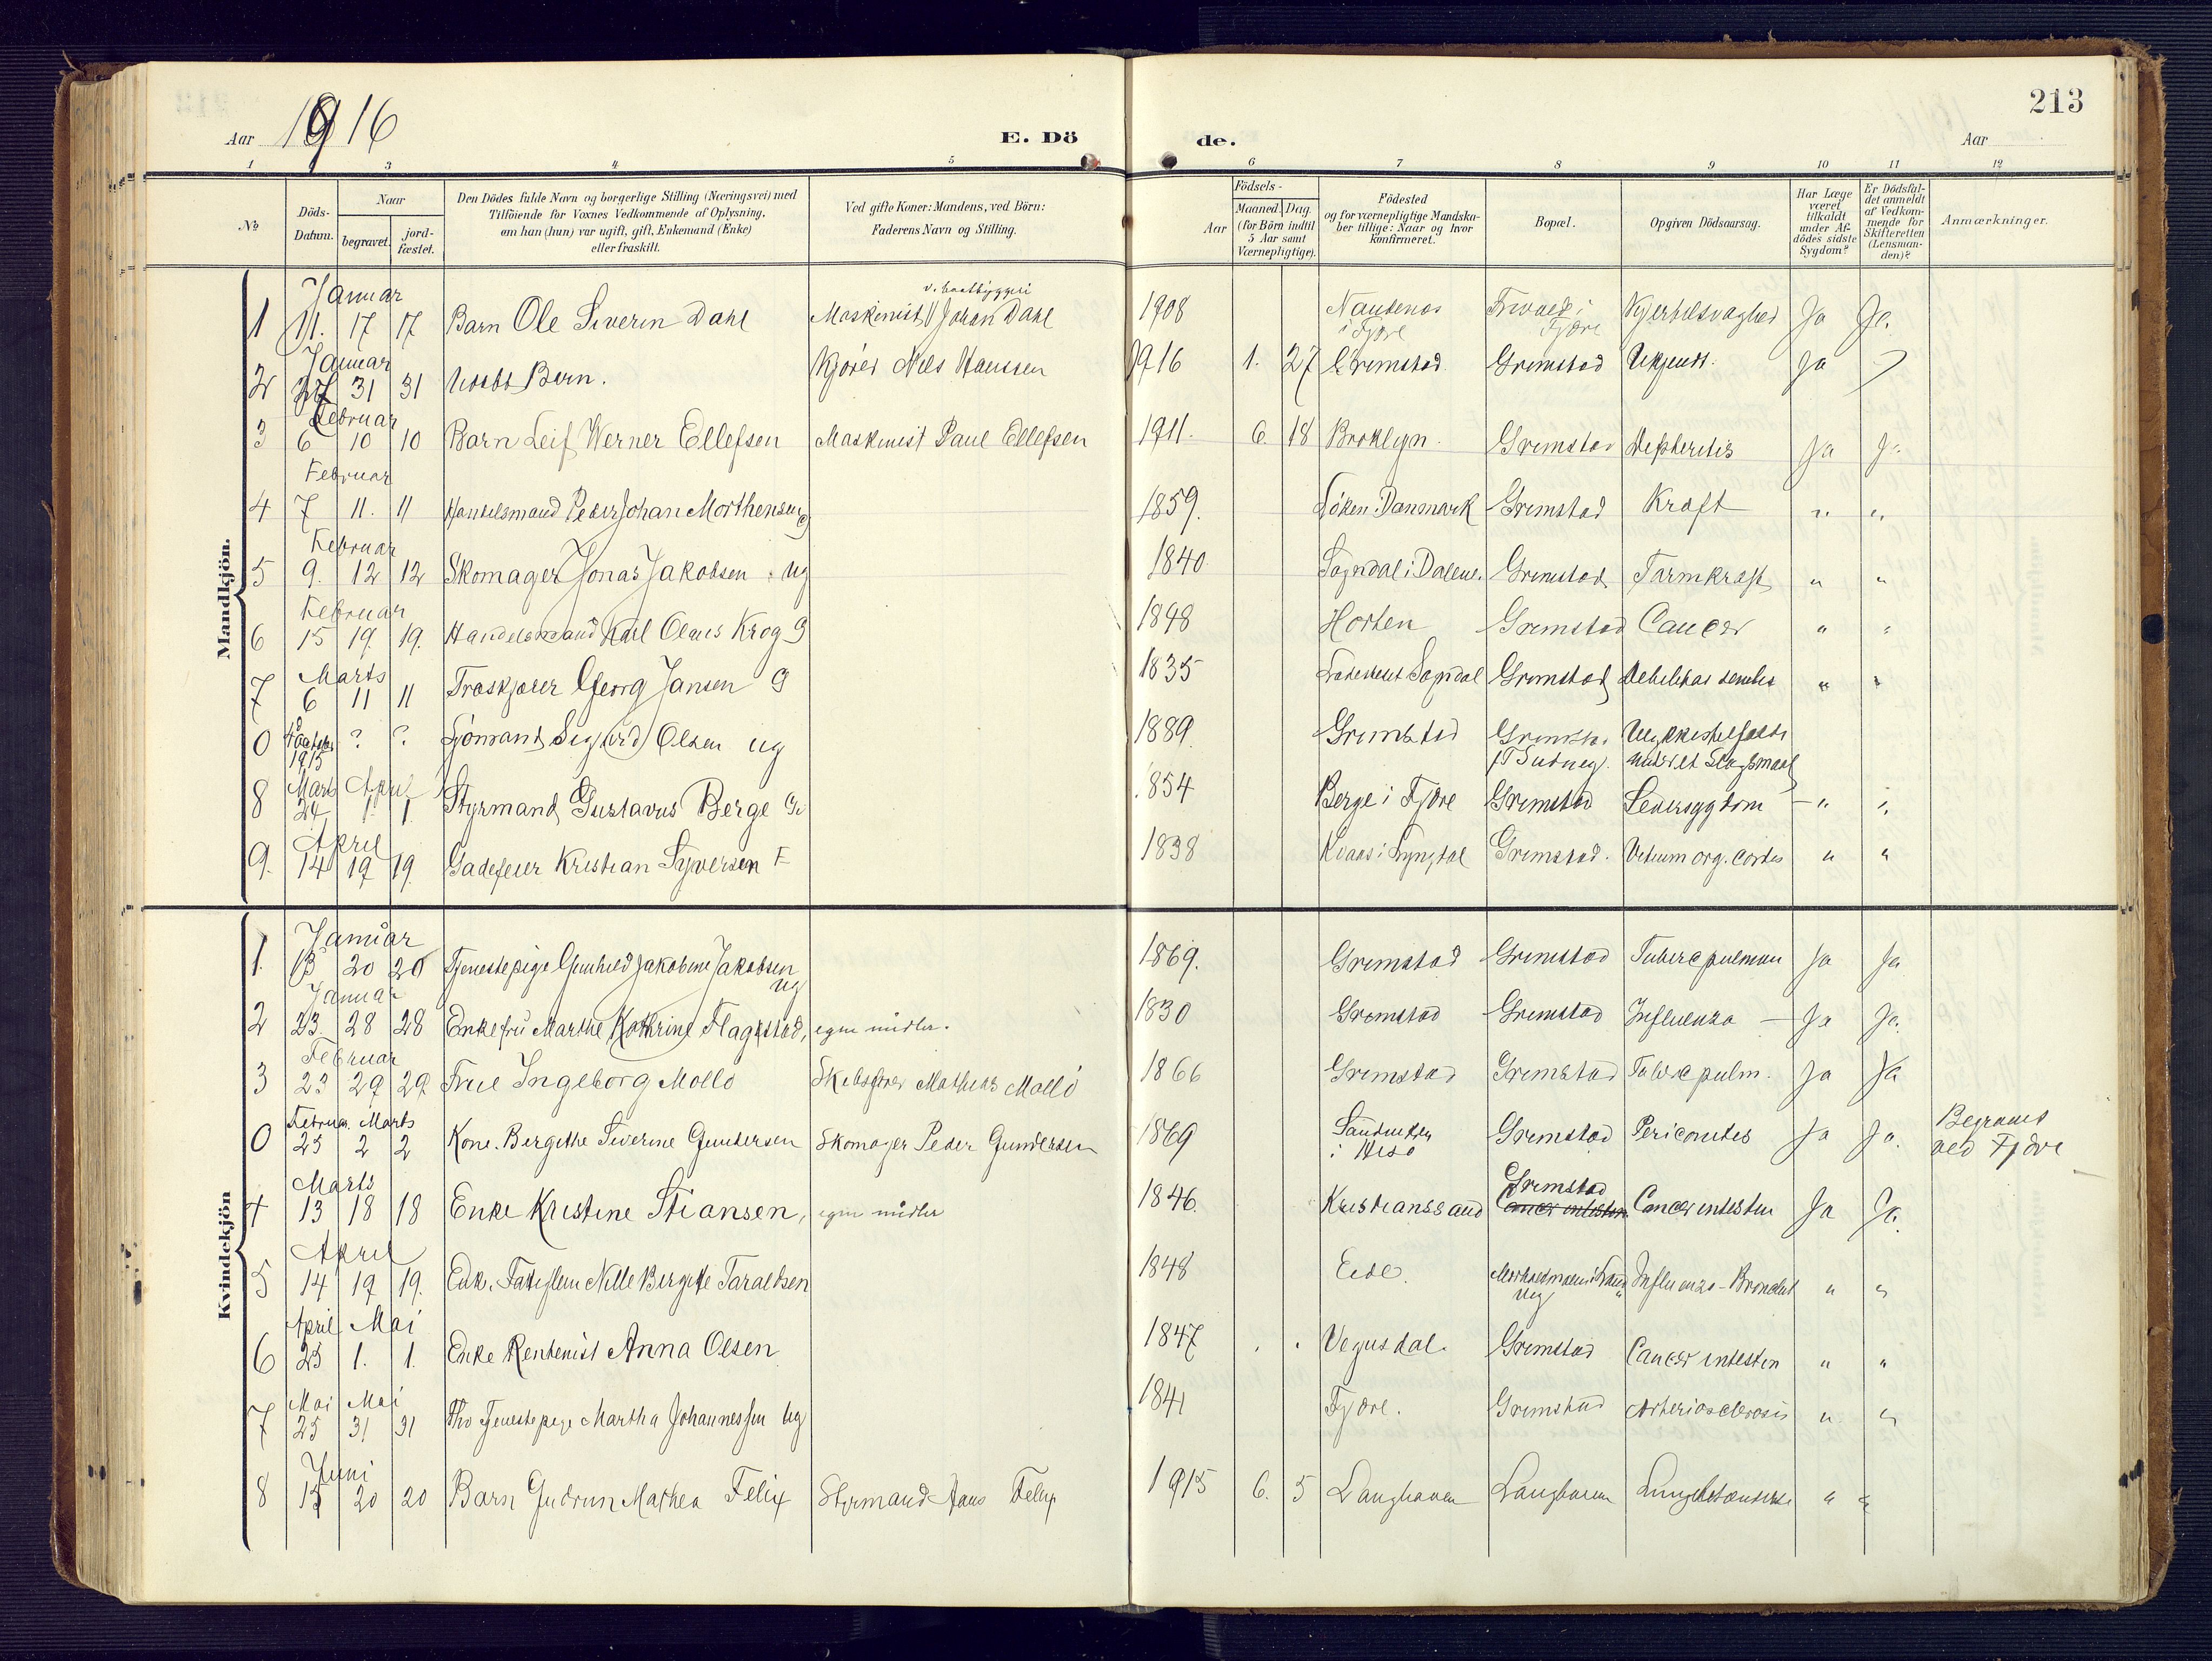 213
Aar 1916
E. Dö
de.
Aar
1 3 4 5 6 7 8 9 10 11 12
No
Döds-
Datum.
Naar
begravet.
jord-
fæstet.
Den Dödes fulde Navn og borgerlige Stilling (Næringsvei) med
Tilföiende for Voxnes Vedkommende af Oplysning,
om han (hun) var ugift, gift, Enkemand (Enke)
eller fraskilt.
Ved gifte Koner: Mandens, ved Börn:
Faderens Navn og Stilling.
Födsels-
Aar
Maaned. Dag.
(for Börn indtil
5 Aar samt
Værnepligtige).
Födested
og for værnepligtige Mandska-
ber tillige: Naar og hvor
konfirmeret.
Bopæl.
Opgiven Dödsaarsag.
Har Læge
været
tilkaldt
under Af-
dödes sidste
Sygdom?
Er Dödsfal-
det anmeldt
af Vedkom-
mende for
Skifteretten
(Lensman-
den)?
Anmærkninger.
Mandkjön.
Januar
1 11. 17 17 Barn Ole Siverin Dahl Maskinist v. baatbyggeri Johan Dahl 1908 i Fjære i Fjære Hjertesvaghed Ja Ja.
Januar
2 27 31 31 Udøbt Barn. Kjører Nils Hanssen 1916 1. 27 Grimstad. Grimstad Ukjendt. Ja
Februar
3 6 10 10 Barn Leif Werner Ellefsen Maskinist Paul Ellefsen 1911. 6. 18 Broklyn. Grimstad Difteritis Ja Ja
Februar
4 7 11. 11 Handelsmand Peder Johan Morthensen g 1859. Danmark Grimstad Kræft " "
Februar
5 9. 12 12 Skomager Jonas Jakobsen ug 1840. Sogndal i Dalene. Grimstad Tarmkræft " "
Februar
6 15 19. 19. Handelsmand Karl Olaus Krog G 1848 Horten Grimstad Cancer " "
Marts
7 6 11 11 Træskjærer Georg Jansen G 1835 Sogndal Grimstad Debilitas senilis " "
0 1915 ? ? Sjömand Sigurd Olsen ug 1889. Grimstad Grimstad Ulykkestilfælde
f T Sidney. under et Slagsmaal
Marts April
8 24 1. 1. Styrmand Gustavus Berge G 1854 Berge i Fjære Grimstad Leversygdom — " "
April
9. 14 19 19. Gadefeier Kristian Syversen E 1838 Kvaas i Lyngdal Grimstad. Vitium org. cordis " "
Kvindekjön
Januar
1. 15 20 20 Tjenestepige Gunhild Jakobine Jakobsen ug 1869. Grimstad Grimstad Tuberc pulmon Ja Ja
Januar
2 23. 28 28 Enkefru Marthe Kathrine Flagstad, egne midler. 1830 Grimstad Grimstad Influenza — Ja Ja.
Februar
3 23 29 29 Frue Ingeborg Mollö Skibsfører Mathias Mollö 1866 Grimstad Grimstad Tuberc pulm. Ja Ja
Februar. Marts
0 25 2 2 Kone. Bergithe Siverine Gundersen Skomager Peder Gundersen 1869 i Hisø Grimstad Ja Ja. Begravet
ved Fjære
Marts
4 13 18 18 Enke Kristine Stiansen, egne midler 1846. Kristianssand Grimstad Cancer intestin Cancer intestin Ja Ja.
April
5 14 19 19. Enke. Fattiglem Nille Bergitte Taraldsen 1848 Eide. Influenza - Bronchit " "
April Mai
6 25 1. 1. Enke Rentenist Anna Olsen 1847 Vegusdal. Grimstad Cancer intestin " "
Mai Mai
7 25 31 31 Fhv Tjenestepige Martha Johannessen ug 1841 Fjære. Grimstad Arteriosclerosis " "
Juni
8 15 20 20 Barn Gudrun Mathea Felix Styrmand Hans Felix 1915 6. 5 Langhaven Langhaven Lungebetændelse " "